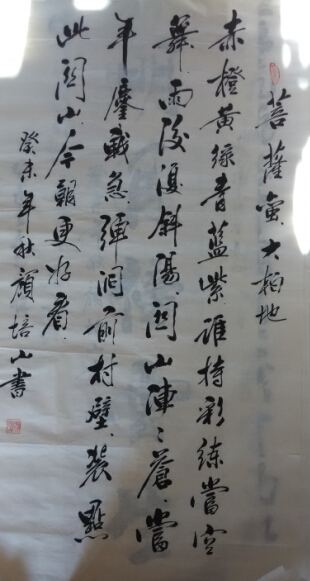 菩薩蛮大柏地
赤橙黄緑青藍紫、誰持彩練當空
舞、雨後復斜陽、関山陣々蒼、當
年鏖戰急、彈洞前村壁、裝點
此関山、今朝更好看、
癸未年秋顏培山書